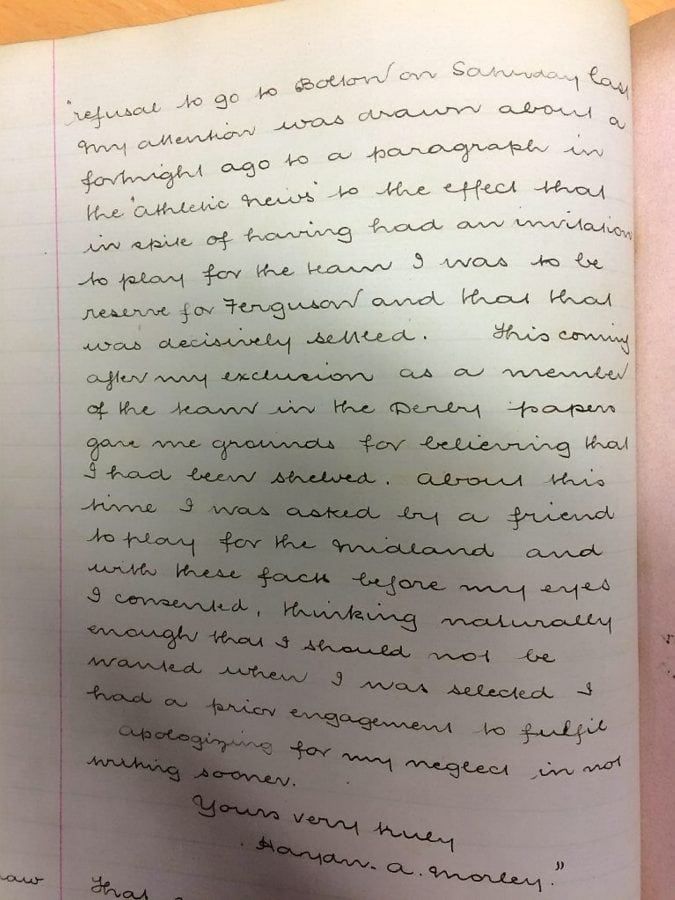 "refusal to go to Bolton on Saturday last
My attention was drawn about a
fortnight ago to a paragraph in
the "athletic News" to the effect that
in spite of having had an invitation
to play for the team I was to be
reserve for Ferguson and that that
was decisively settled. This coming
after my exclusion as a member
of the team in the Derby papers
gave me grounds for believing that
I had been shelved. About this
time I was asked by a friend
to play for the Midland and
with these facts before my eyes
I consented, thinking naturally
enough that I should not be
wanted when I was selected I
had a prior engagement to fulfil
apologizing for my neglect in not
writing sooner.
Yours very truly
Haydn. A. Morley."
aw That